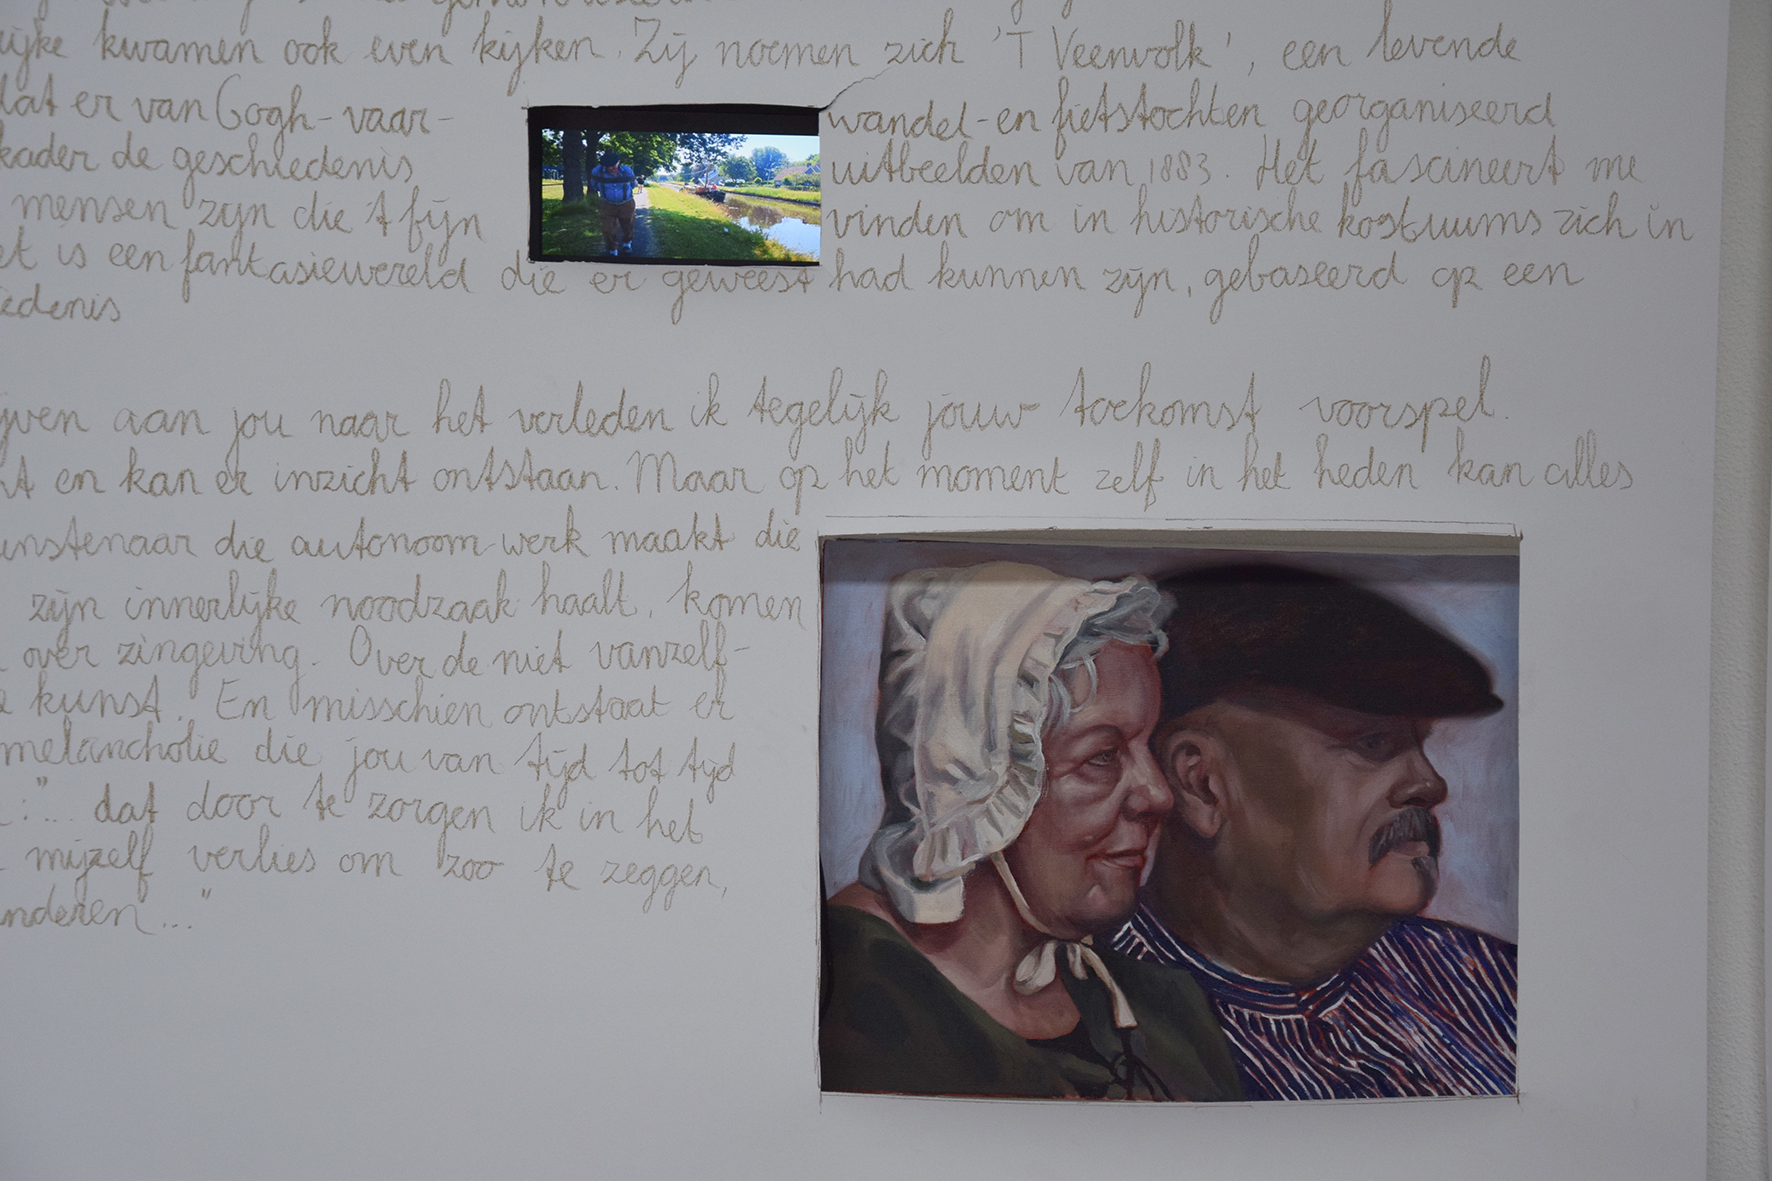 kwamen ook even kijken. Zij noemen zich 'T Veenvolk', een levende
dat er van Gogh-vaar- wandel-en fietstochten georganiseerd
kader de geschiedenis uitbeelden van 1883. Het fascineert me
mensen zijn die 't fijn vinden om in historische kostuums zich in
is een fantasiewereld die er geweest had kunnen zijn, gebaseerd op een
aan jou naar het verleden ik tegelijk jouw toekomst voorspel.
en kan er inzicht ontstaan. Maar op het moment zelf in het heden kan alles
unstenaar die autonoom werk maakt die
zijn innerlijke noodzaak haalt, komen
over zingeving. Over de niet vanzelf-
kunst. En misschien ontstaat er
melancholie die jou van tijd tot tijd
:"... dat door te zorgen ik in het
mijzelf verlies om zoo te zeggen,
nderen..."